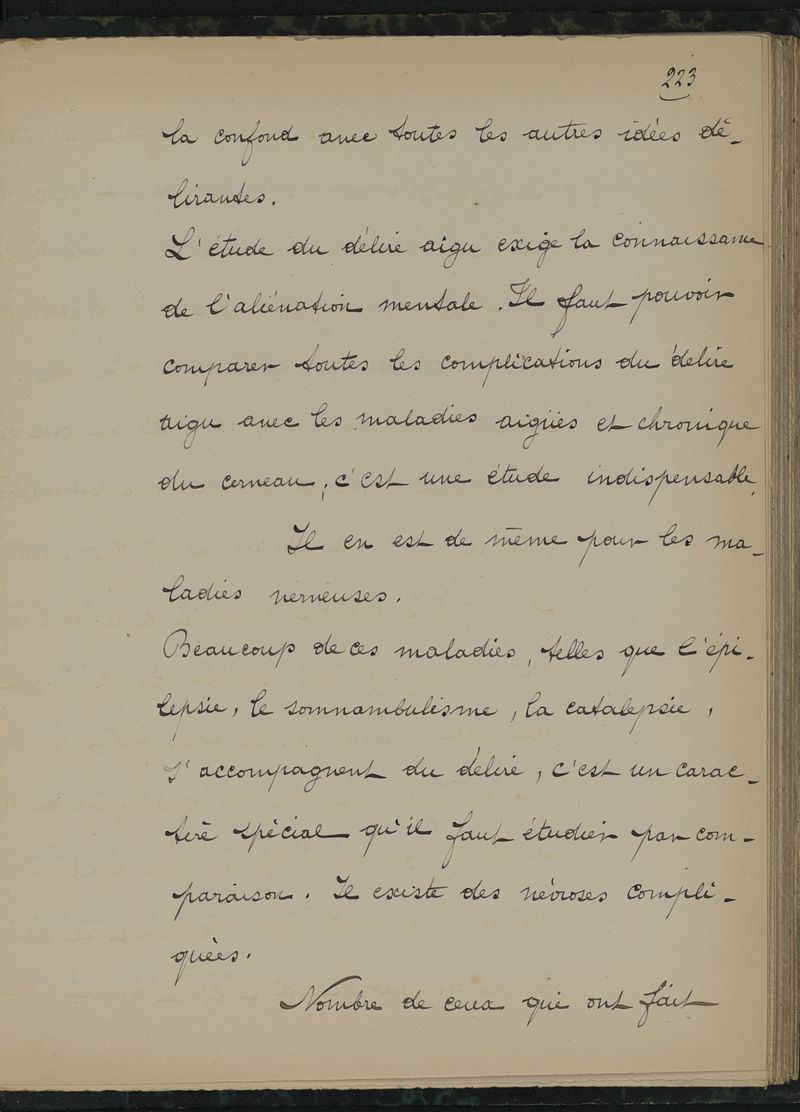 223
la confond avec toutes les autres idées dé-
lirantes.
L'étude du délire aigu exige la connaissance
de l'aliénation mentale. Il faut pouvoir
comparer toutes les complications du délire
aigu avec les maladies aigües et chronique
du cerveau ; c'est une étude indispensable.
Il en est de même pour les ma-
ladies nerveuses.
Beaucoup de ces maladies, telles que l'épi-
lepsie, le somnambulisme, la catalepsie,
s'accompagnent du délire, c'est un carac-
tère spécial qu'il faut étudier par com-
paraison. Il existe des névroses compli-
quées.
Nombre de ceux qui ont fait